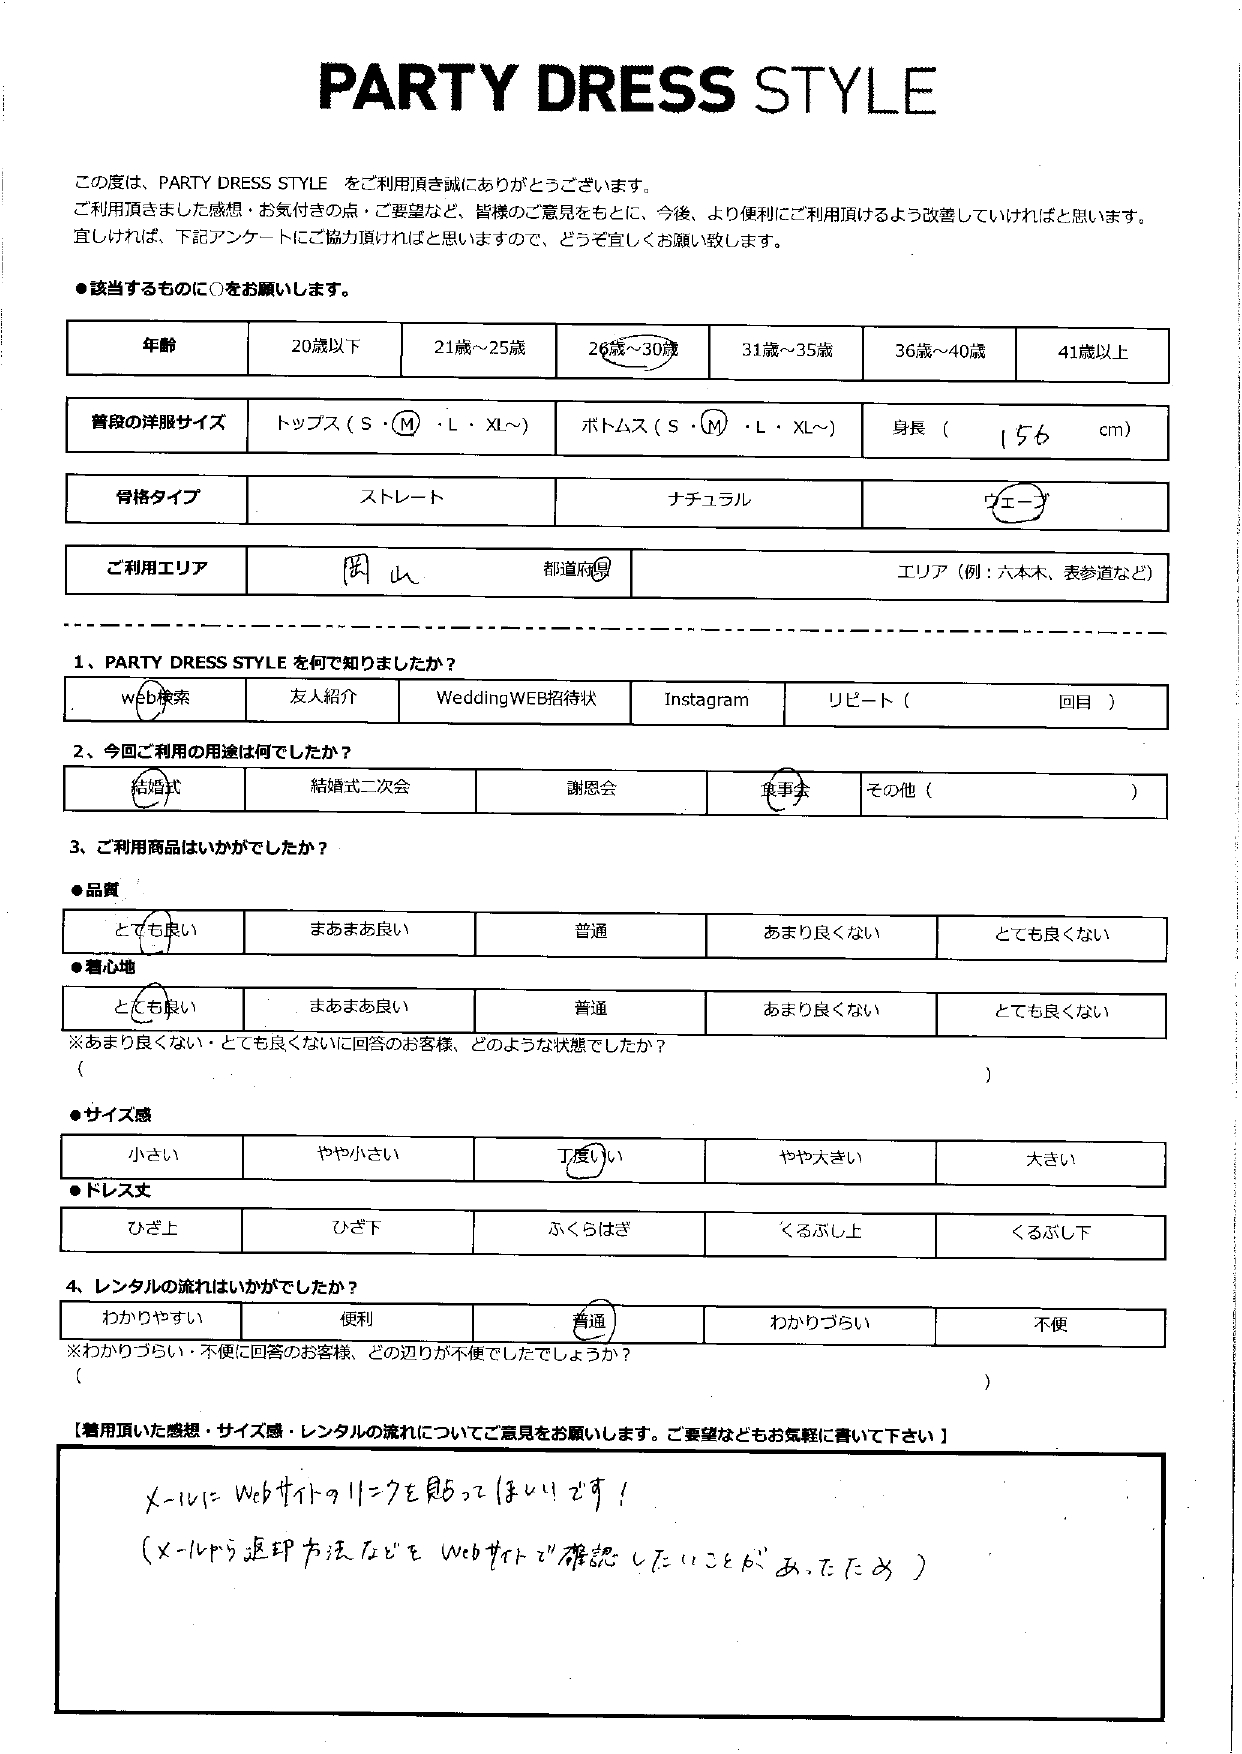 PARTY DRESS STYLE
この度は、PARTY DRESS STYLE をご利用頂き誠にありがとうございます。
ご利用頂きました感想・お気付きの点・ご要望など、皆様のご意見をもとに、今後、より便利にご利用頂けるよう改善していければと思います。
宜しければ、下記アンケートにご協力頂ければと思いますので、どうぞ宜しくお願い致します。
●該当するものに○をお願いします。
年齢 20歳以下 21歳～25歳 26歳～30歳 31歳～35歳 36歳～40歳 41歳以上
普段の洋服サイズ トップス ( S ・ M ・ L ・ XL～) ボトムス ( S ・ M ・ L ・ XL～) 身長 ( 156 cm)
骨格タイプ ストレート ナチュラル ウェーブ
ご利用エリア 岡山 都道府県 エリア（例：六本木、表参道など）
1、PARTY DRESS STYLE を何で知りましたか？
web検索 友人紹介 WeddingWEB招待状 Instagram リピート（ 回目 ）
2、今回ご利用の用途は何でしたか？
結婚式 結婚式二次会 謝恩会 食事会 その他（ ）
3、ご利用商品はいかがでしたか？
●品質
とても良い まあまあ良い 普通 あまり良くない とても良くない
●着心地
とても良い まあまあ良い 普通 あまり良くない とても良くない
※あまり良くない・とても良くないに回答のお客様、どのような状態でしたか？
（ ）
●サイズ感
小さい やや小さい 丁度いい やや大きい 大きい
●ドレス丈
ひざ上 ひざ下 ふくらはぎ くるぶし上 くるぶし下
4、レンタルの流れはいかがでしたか？
わかりやすい 便利 普通 わかりづらい 不便
※わかりづらい・不便に回答のお客様、どの辺りが不便でしたでしょうか？
（ ）
【着用頂いた感想・サイズ感・レンタルの流れについてご意見をお願いします。ご要望などもお気軽に書いて下さい 】
メールに Webサイトのリンクを貼ってほしいです！
(メールから返却方法などを Webサイトで確認したいことがあったため)